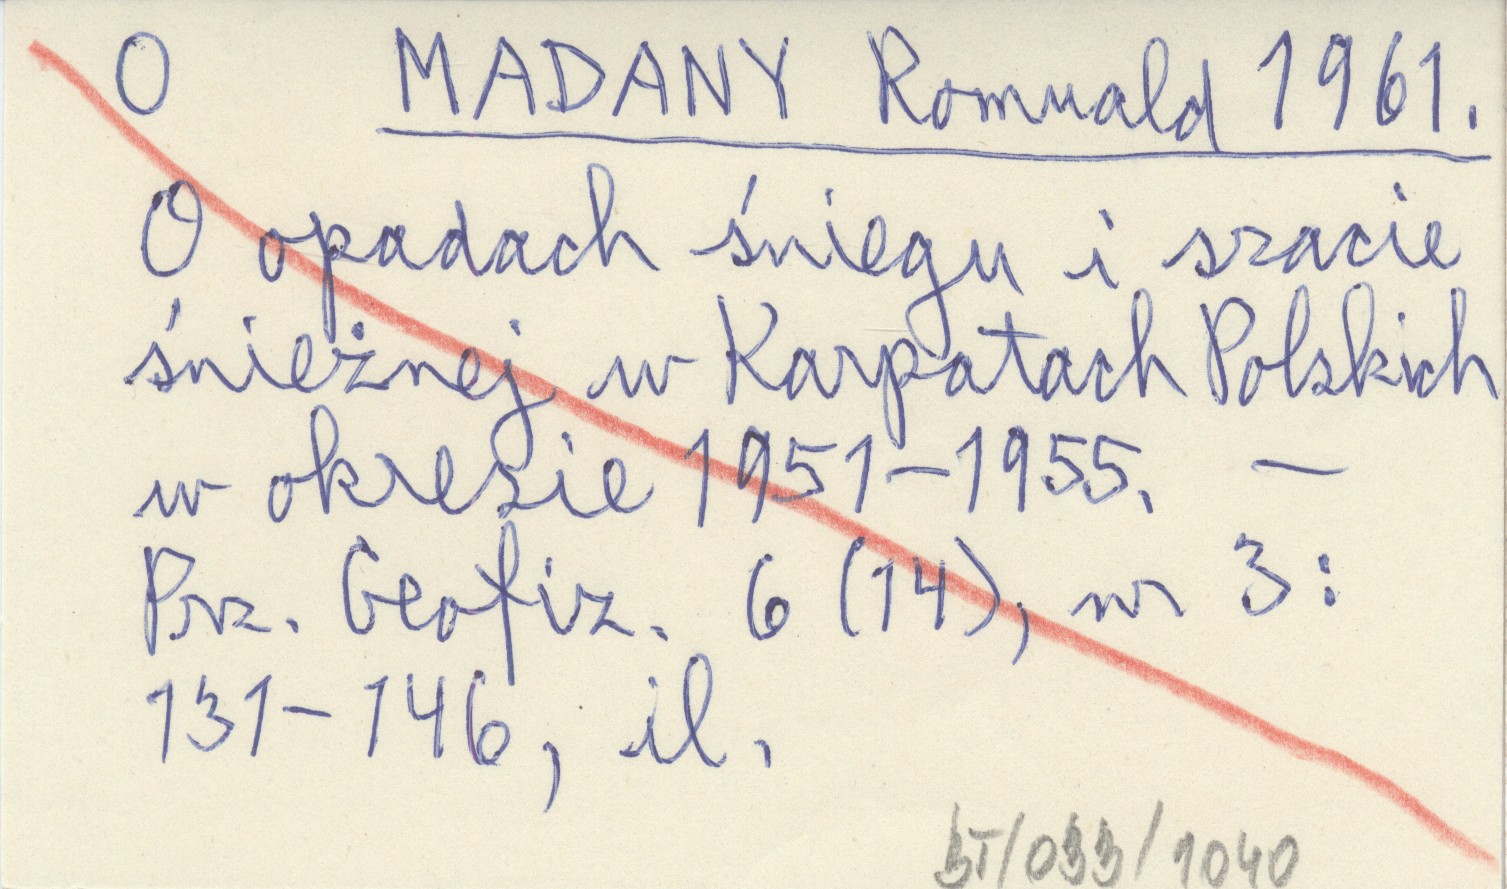 O MADANY Romuald 1961.
O opadach śniegu i szacie
śnieżnej w Karpatach Polskich
w okresie 1951-1955. -
Prz. Geofiz. 6 (14), nr 3:
131-146, il.
BT/033/1040